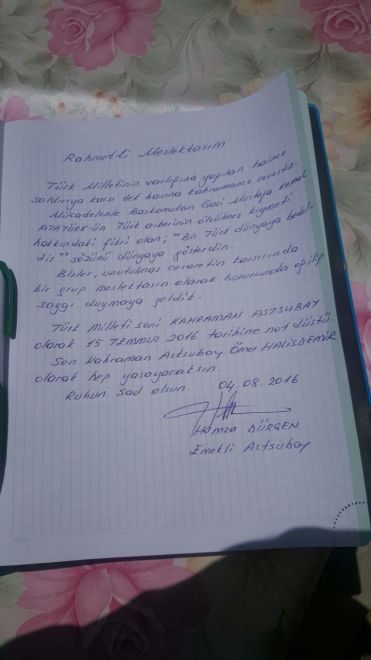 Rahmetli Meslektaşım
Türk Milletinin varlığına yapılan haince
saldırıya karşı tek başına kahramanca savaştın.
Mücadelenle Başkomutan Gazi Mustafa Kemal
ATATÜRK-ün Türk askerinin ölçülmez kıymeti
hakkındaki fikri olan; "Bir Türk dünyaya bedel-
dir" sözünü dünyaya gösterdin.
Bizler, unutulmaz cesaretin karşısında
bir grup meslektaşın olarak huzurunda eğilip
saygı duymaya geldik.
Türk Milleti seni KAHRAMAN ASTSUBAY
olarak 15 TEMMUZ 2016 tarihine not düştü.
Sen Kahraman Astsubay Ömer HALİSDEMİR
olarak hep yaşayacaksın.
Ruhun şad olsun. 04.08.2016
Hamza DÜRGEN
Emekli Astsubay